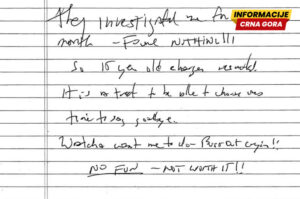 INFORMACIJE
CRNA GORA
They investigated me for
month – Found NOTHING!!!
So 15 year old charges
It is treat to be able to choose
time to say goodbye.
Watcha want me to do – Burst out cryin!!
NO FUN – NOT WORTH IT!!